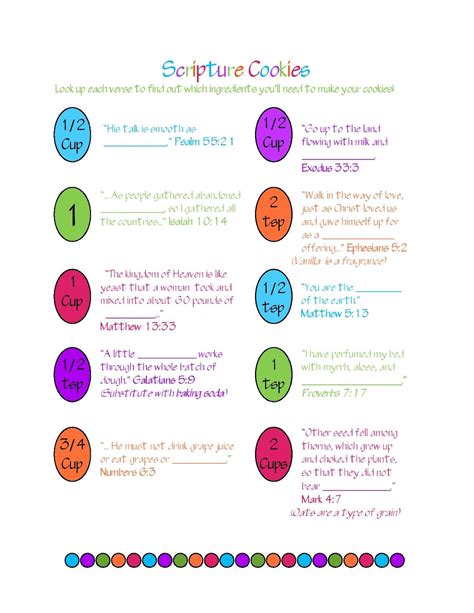 Scripture Cookies
Look up each verse to find out which ingredients you'll need to make your cookies!
1/2
Cup
"His talk is smooth as
____________," Psalm 55:21
1/2
Cup
"Go up to the land
flowing with milk and
____________."
Exodus 33:3
1
"... As people gathered abandoned
____________, so I gathered all
the countries..." Isaiah 10:14
2
tsp
"Walk in the way of love,
just as Christ loved us
and gave himself up for
as a ____________
offering..." Ephesians 5:2
(Vanilla is a fragrance)
1
Cup
"The kingdom of Heaven is like
yeast that a woman took and
mixed into about 60 pounds of
____________."
Matthew 13:33
1/2
tsp
"You are the ____________
of the earth."
Matthew 5:13
1/2
tsp
"A little ____________ works
through the whole batch of
dough." Galatians 5:9
(Substitute with baking soda)
1
tsp
"I have perfumed my bed
with myrrh, aloes, and
____________."
Proverbs 7:17
3/4
Cup
"... He must not drink grape juice
or eat grapes or ____________."
Numbers 6:3
2
Cups
"Other seed fell among
thorns, which grew up
and choked the plants,
so that they did not
bear ____________."
Mark 4:7
(Oats are a type of grain)